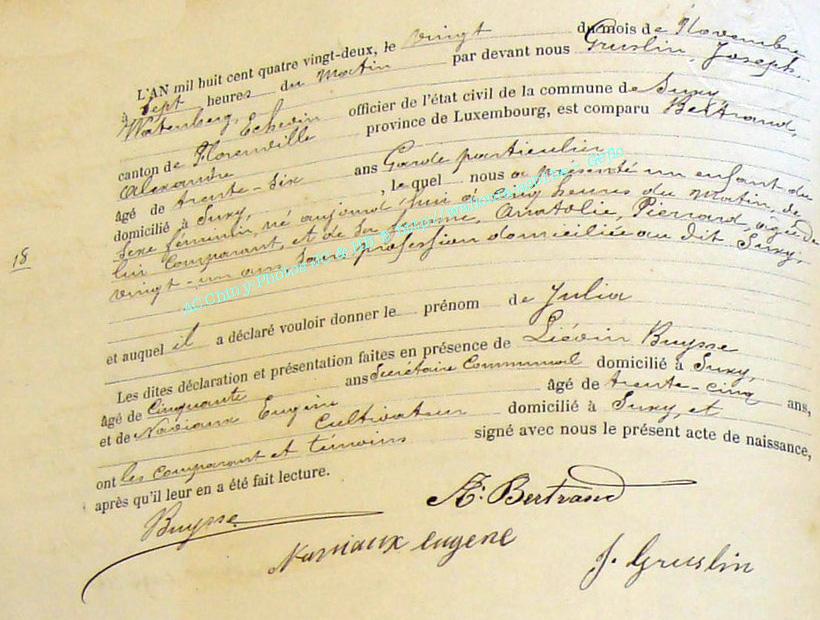 L'AN mil huit cent quatre vingt-deux, le vingt du mois de Novembre
à Sept heures du Matin par devant nous Gruslin, Joseph
Watenberg, Echevin officier de l'état civil de la commune de Suxy
canton de Florenville province de Luxembourg, est comparu Bertrand,
Alexandre
âgé de trente-six ans Garde particulier
domicilié à Suxy, le quel nous a présenté un enfant du
Sexe féminin, né aujourd'hui à cinq heures du Matin, de
lui Comparant, et de Sa femme, Anatolie, Pierrard, agée de
vingt-un ans, Sans profession domiciliée au dit Suxy,
18
et auquel il a déclaré vouloir donner le prénom de Julia
Les dites déclaration et présentation faites en présence de Liévin Buysse
âgé de Cinquante ans Secrétaire Communal domicilié à Suxy,
et de Naviaux Eugène âgé de trente-cinq ans,
Cultivateur domicilié à Suxy, et
ont les comparant et témoins signé avec nous le présent acte de naissance,
après qu'il leur en a été fait lecture.
A. Bertrand
Buysse
Naviaux eugene
J. Gruslin